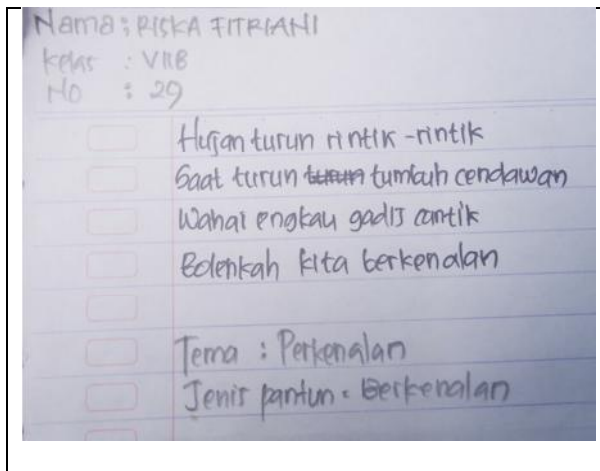 Nama : RISKA FITRIANI
Kelas : VIIB
No : 29
Hujan turun rintik-rintik
Saat turun turun tumbuh cendawan
Wahai engkau gadis cantik
Bolehkah kita berkenalan
Tema : Perkenalan
Jenis pantun : Berkenalan